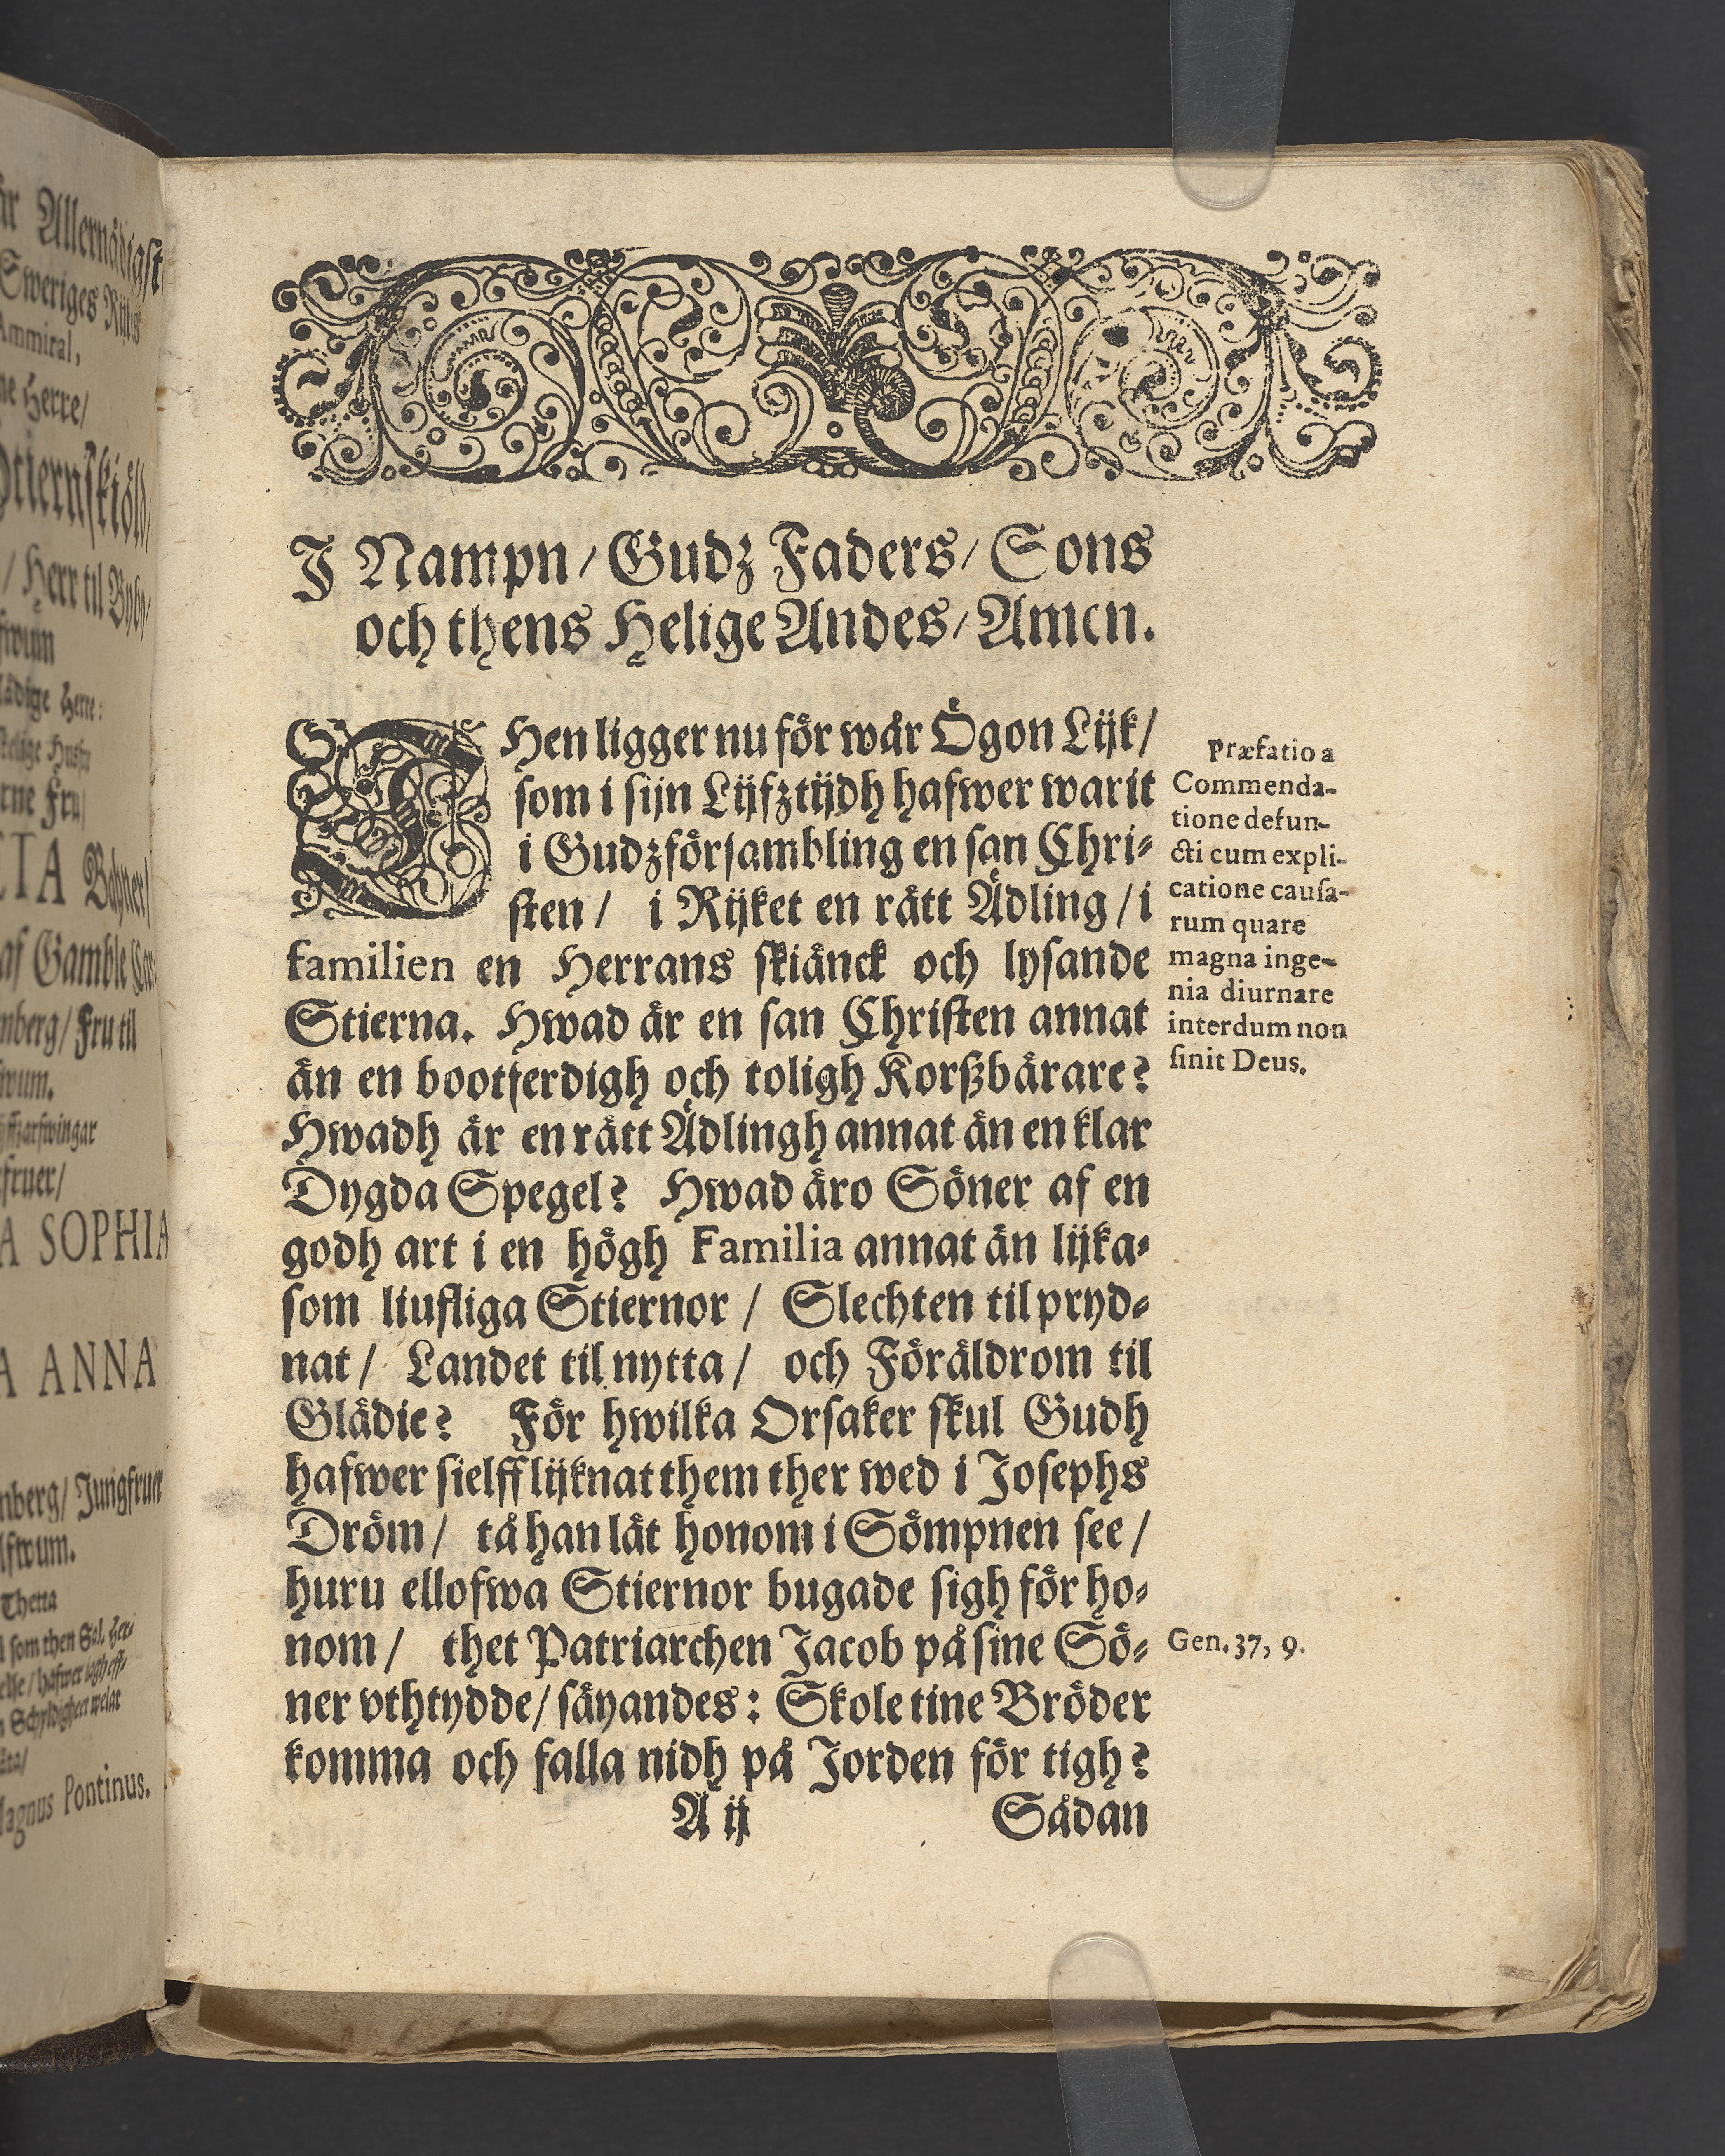 år Allernådigst
Sweriges Rijks
Ammiral,
ne Herre/
Stiernskiöld/
/ Herr til Byby/
ädige Herre:
rne Fru/
af Gamble
nberg/ Fru til
fruer/
A SOPHIA
A ANNA
nberg/ Jungfruer
Thetta
l som then Sal. Her-
Magnus Pontinus.
J Nampn/ Gudz Faders/ Sons
och thens Helige Andes/ Amen.
THen ligger nu för wår Ögon Lijk/
som i sijn Lijfztijdh hafwer warit
i Gudzförsambling en san Chri-
sten/ i Rijket en rätt Ädling/ i
familien en Herrans skiänck och lysande
Stierna. Hwad är en san Christen annat
än en bootferdigh och toligh Korßbärare?
Hwadh är en rätt Ädlingh annat än en klar
Dygda Spegel? Hwad äro Söner af en
godh art i en högh Familia annat än lijka-
som liufliga Stiernor/ Slechten til pryd-
nat/ Landet til nytta/ och Föräldrom til
Glädie? För hwilka Orsaker skul Gudh
hafwer sielff lijknat them ther wed i Josephs
Dröm/ tå han lät honom i Sömpnen see/
huru ellofwa Stiernor bugade sigh för ho-
nom/ thet Patriarchen Jacob på sine Sö-
ner vthtydde/ säyandes: Skole tine Bröder
komma och falla nidh på Jorden för tigh?
A ij Sådan
Præfatio a
Commenda-
tione defun-
cti cum expli-
catione causa-
rum quare
magna inge-
nia diurnare
interdum non
sinit Deus.
Gen. 37, 9.